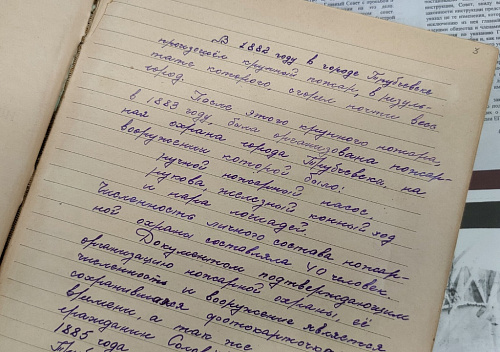 3
В 1882 году в городе Трубчевске
произошёл крупный пожар, в резуль-
тате которого сгорел почти весь
город.
После этого крупного пожара,
в 1883 году была организована пожар-
ная охрана города Трубчевска, на
вооружении которой было:
ручной пожарный насос,
рукава, железный конный ход
и пара лошадей.
Численность личного состава пожар-
ной охраны составляла 40 человек.
Документом подтверждающим
организацию пожарной охраны, её
численность и вооружение является
сохранившаяся фотокарточка
времени, а так же
гражданин
1885 года